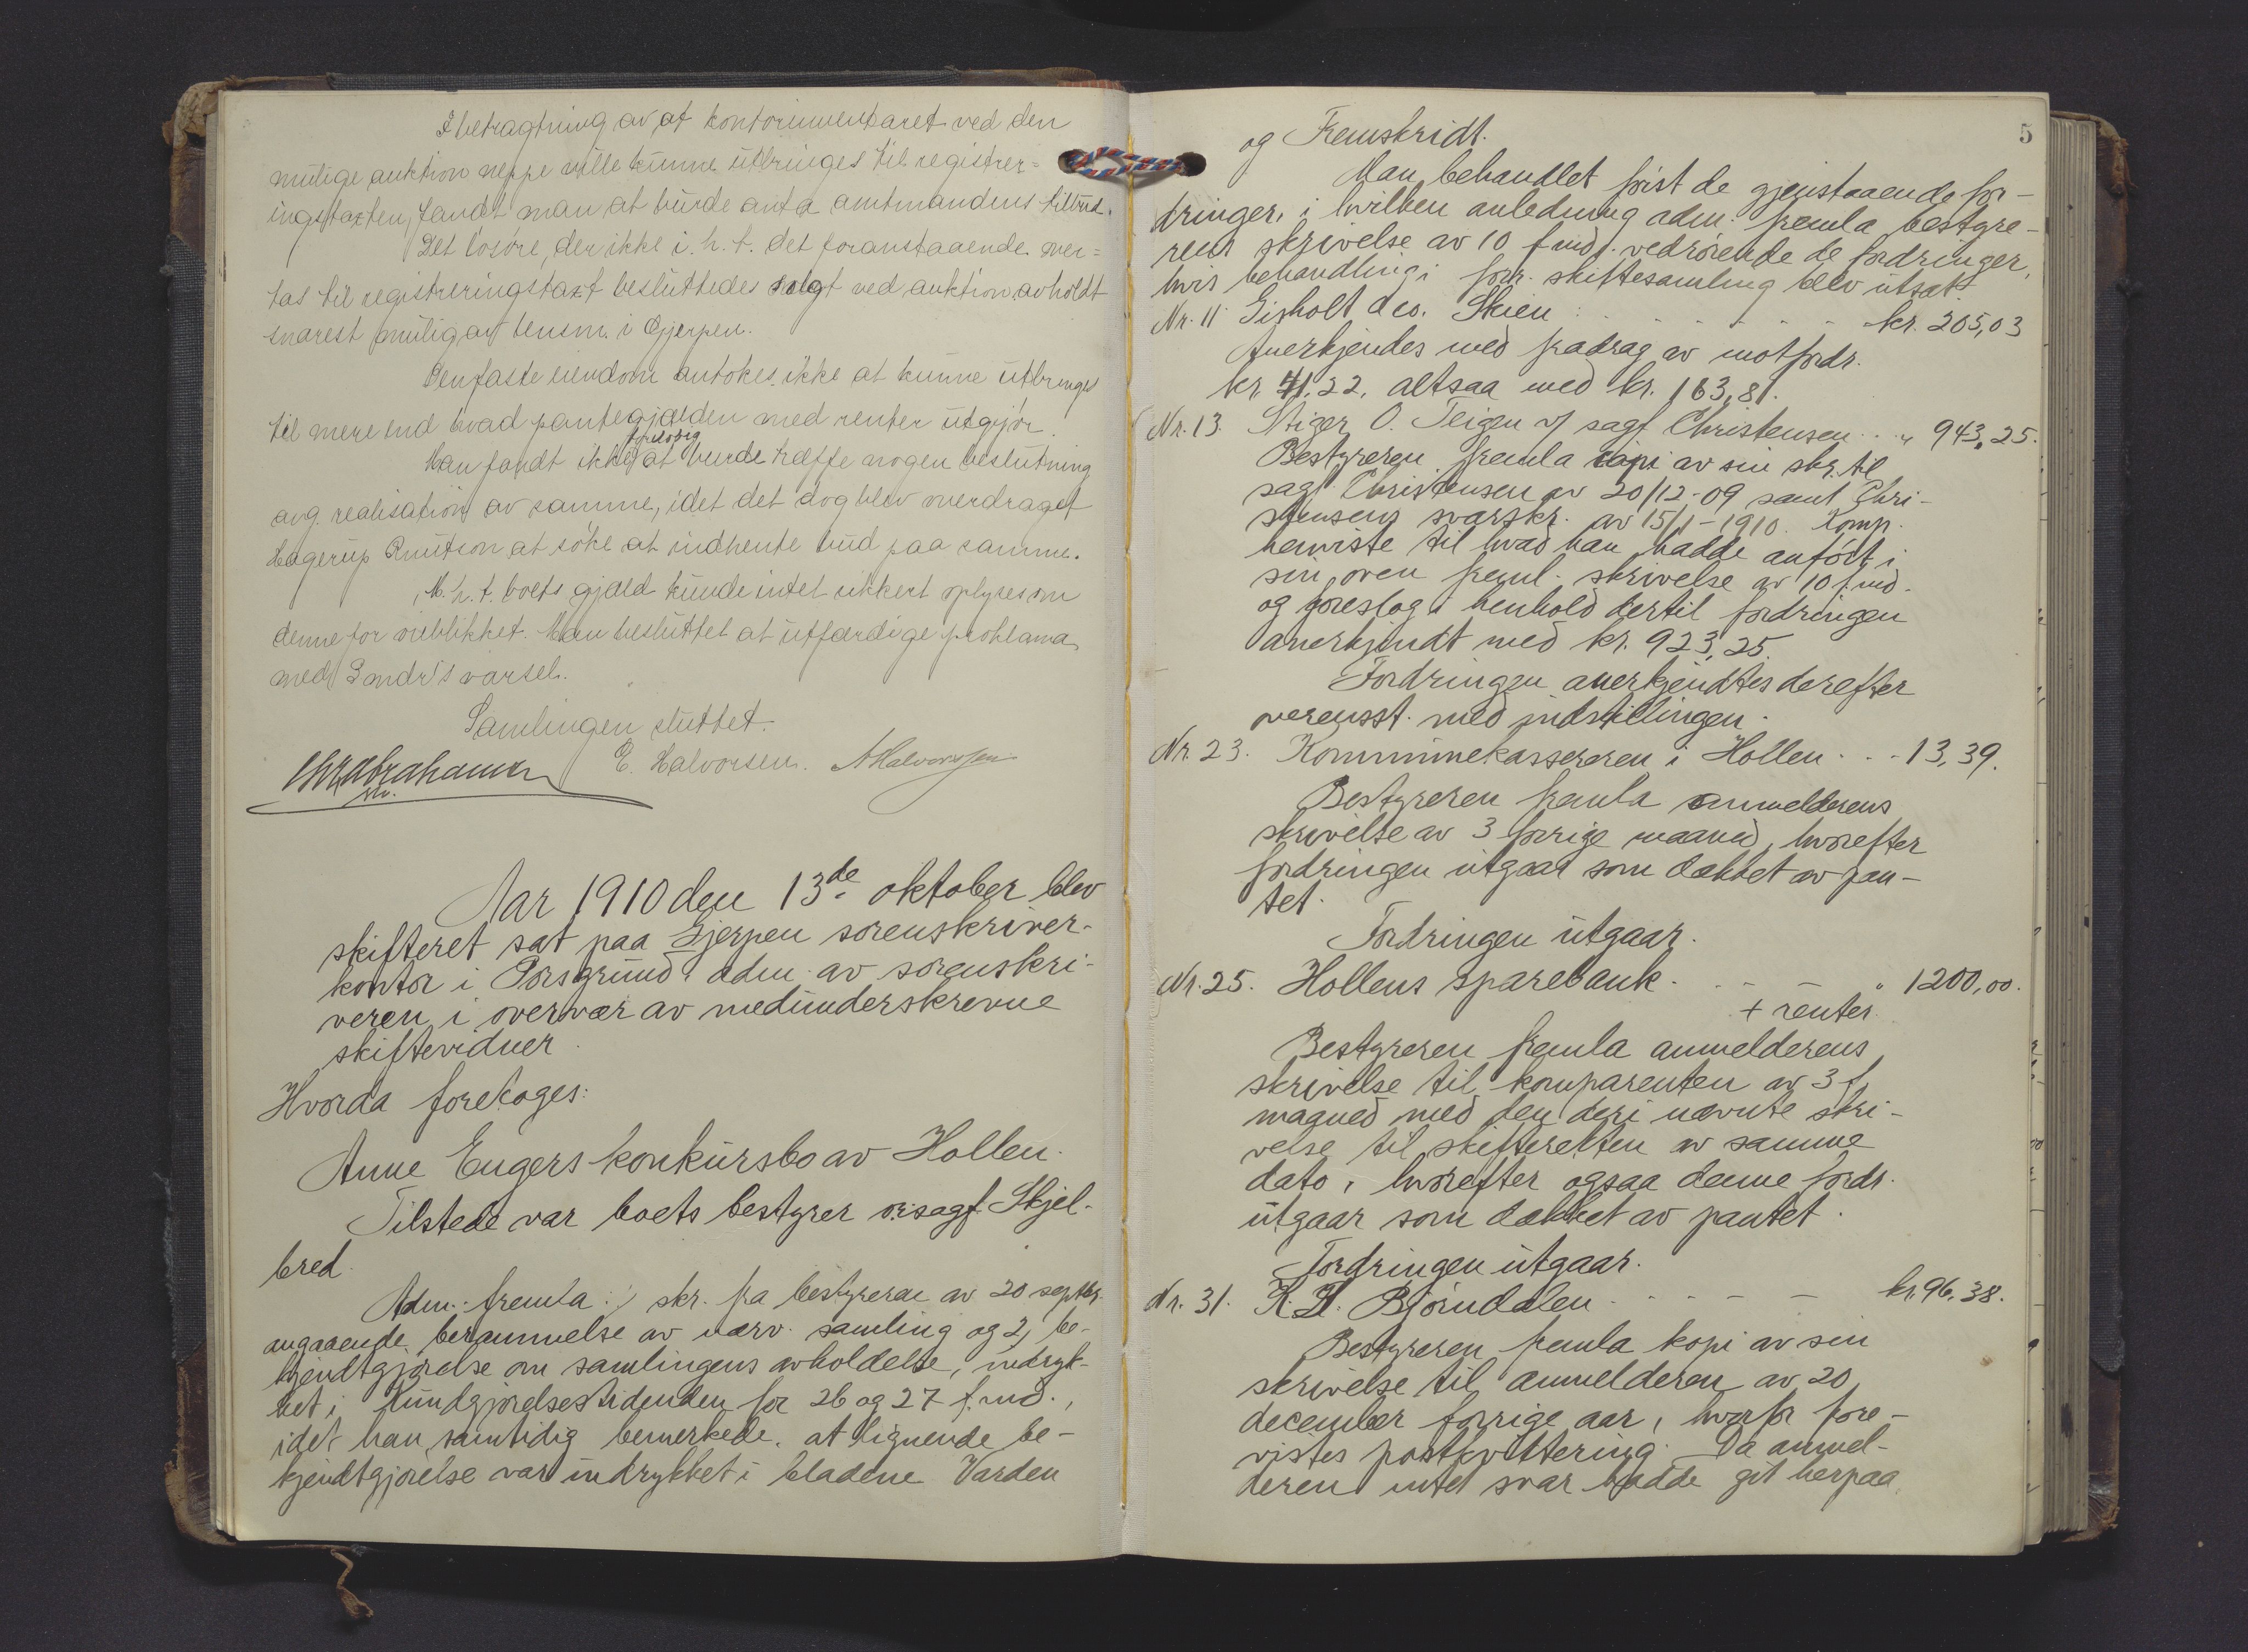 I betragtning av at kontorinventaret ved den
mulige auktion neppe ville kunne utbringes til registrer=
ingstaxten, fandt man at burde anta amtmandens tilbud.
Det løsøre, der ikke i.h.t. det foranstaaende over=
tas til registreringstaxt besluttedes solgt ved auktion avholdt
snarest mulig av lensm. i Gjerpen.
Den faste eiendom antokes ikke at kunne utbringes
til mere end hvad pantegjælden med renter utgjør.
forelöbig
Man fandt ikke at burde træffe nogen beslutning
ang. realisation av samme, idet det dog blev overdraget
Hagerup Knutson at söke at indhente bud paa samme.
M.h.t. boets gjæld kunde intet sikkert oplyses om
denne for øieblikket. Man besluttet at utfærdige proklama
med 3 mdr's varsel.
Samlingen sluttet.
Chr Abrahamsen E. Halvorsen. A Halvorsen
Aar 1910 den 13de oktober blev
skifteret sat paa Gjerpen sorenskriver-
kontor i Porsgrund adm. av sorenskri-
veren i overvær av medunderskrevne
skiftevidner.
Hvorda foretoges:
Anne Engers konkursbo av Hollen.
Tilstede var boets bestyrer o.r.sagf. Skjel-
bred.
Adm. fremla: 1, skr. fra bestyreren av 20 septbr.
angaaende berammelse av nærv. samling og 2, be-
kjendtgjørelse om samlingens avholdelse, indryk-
ket i Kundgjørelsestidenden for 26 og 27 f.md.,
idet han samtidig bemerkede, at lignende be-
kjendtgjørelse var indrykket i bladene Varden
5
og Fremskridt.
Man behandlet först de gjenstaaende for-
dringer, i hvilken anledning adm. fremla bestyre-
rens skrivelse av 10 f.md. vedrørende de fordringer,
hvis behandling i forr. skiftesamling blev utsat.
Nr. 11 Eisholt & co. Skien . . . . . . kr. 205,03
Anerkjendes med fradrag av motfordr.
kr. 41.22, altsaa med kr. 163,81.
Nr. 13. Stiger O. Teigen v/ sagf Christensen . . „ 943,25.
Bestyreren fremla kopi av sin skr. til
sagf Christensen av 20/12-09 samt Chri-
stensens svarskr. av 15/1-1910. Komp.
henviste til hvad han hadde anfört i
sin oven freml. skrivelse av 10 f.md.
og foreslog i henhold dertil fordringen
anerkjendt med kr. 923,25.
Fordringen anerkjendtes derefter
overensst. med indstillingen.
Nr. 23. Kommunekassereren i Hollen . . . 13,39.
Bestyreren fremla anmelderens
skrivelse av 3 forrige maaned, hvorefter
fordringen utgaar som dækket av pan-
tet.
Fordringen utgaar.
Nr. 25. Hollens sparebank . . . . „ 1200,00.
+ renter.
Bestyreren fremla anmelderens
skrivelse til komparenten av 3 f.
maaned med den deri nævnte skri-
velse til skifteretten av samme
dato, hvorefter ogsaa denne fordr.
utgaar som dækket av pantet.
Fordringen utgaar.
Nr. 31. Björndalen . . . . . kr. 96,38.
Bestyreren fremla kopi av sin
skrivelse til anmelderen av 20
december forrige aar, hvorfor fore-
vistes postkvittering. Da anmel-
deren intet svar hadde git herpaa